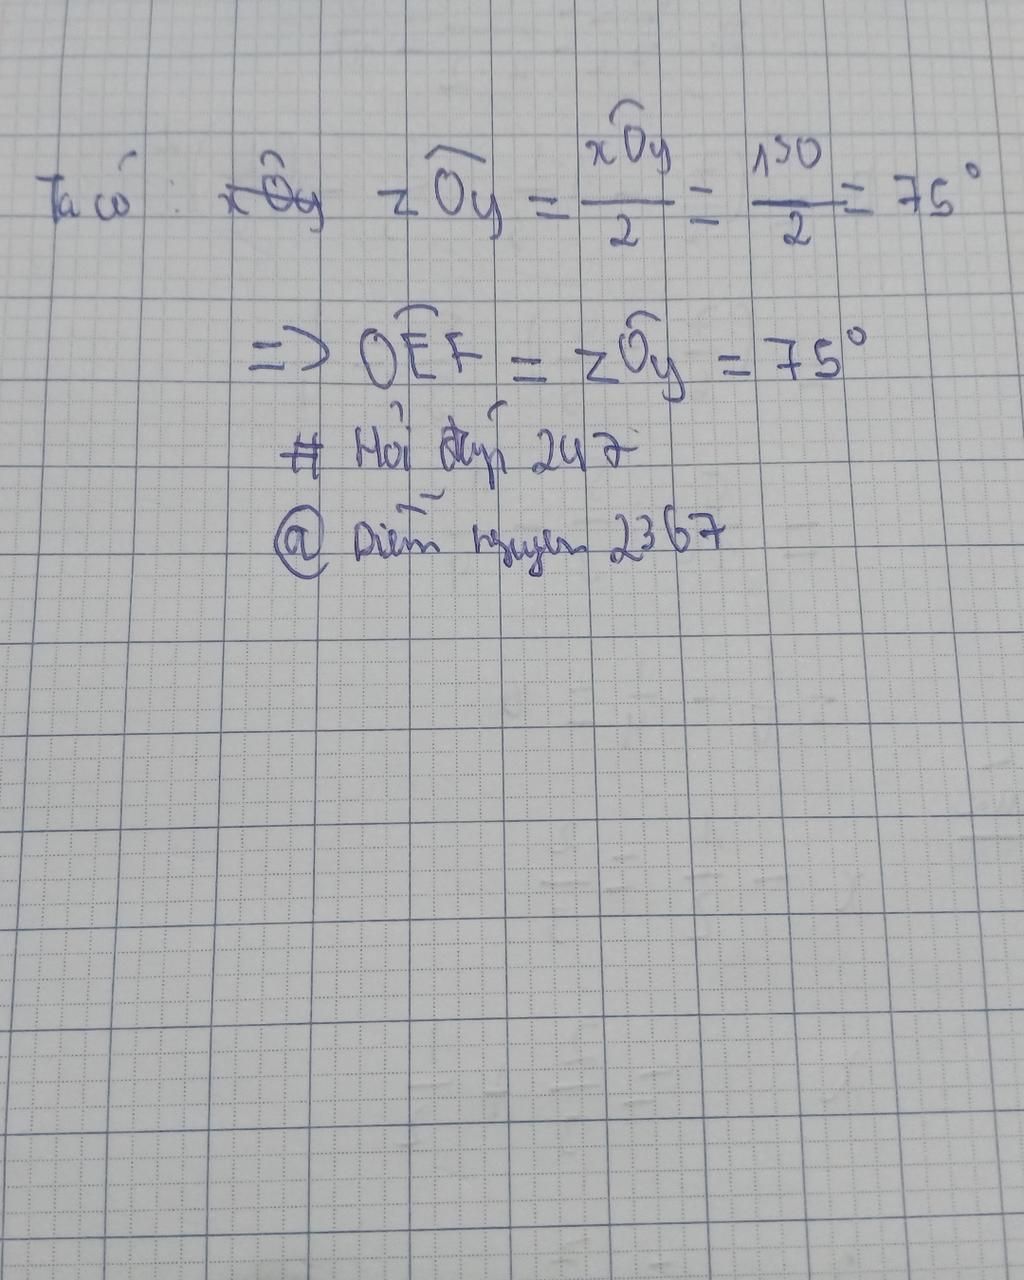 Ta có : xÔy zÔy = xÔy/2 = 150/2 = 75°
=> OÊF = zÔy = 75°
# Hỏi đáp 247
@ Diễm nguyen 2367